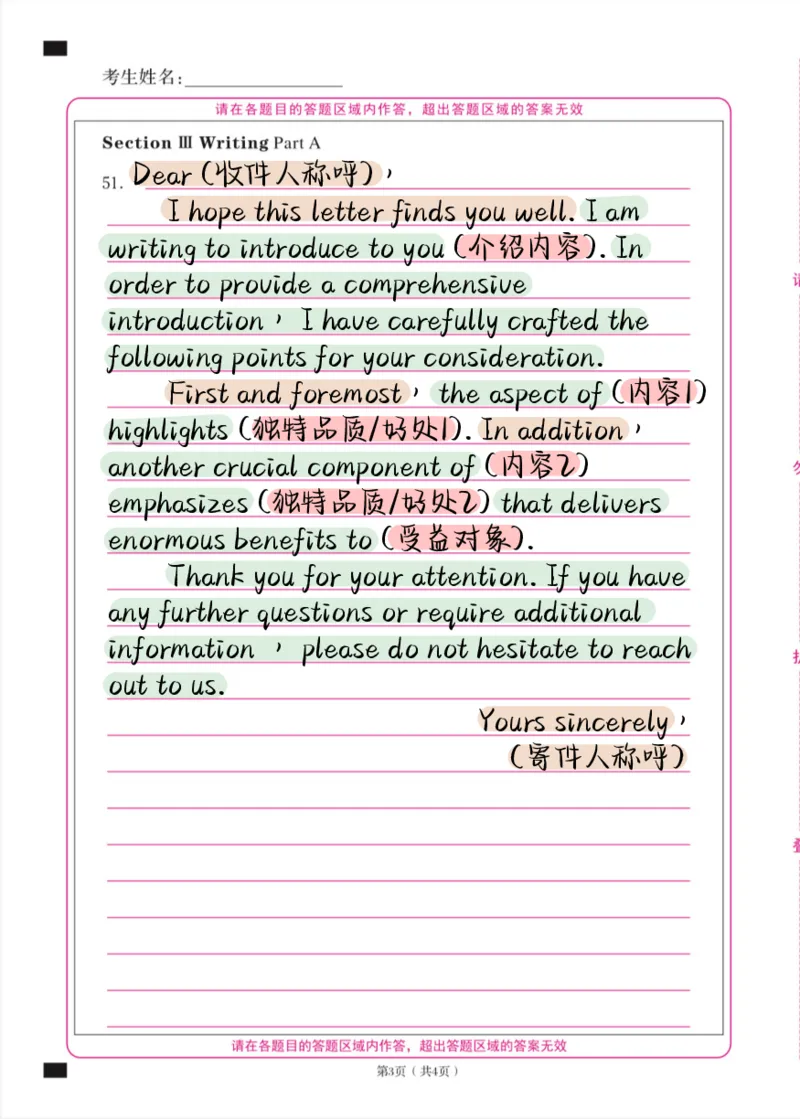 考生姓名：
请在各题目的答题区域内作答，超出答题区域的答案无效
Section Ⅲ Writing Part A
51. Dear (收件人称呼)，
I hope this letter finds you well. I am
writing to introduce to you (介绍内容). In
order to provide a comprehensive
introduction， I have carefully crafted the
following points for your consideration.
First and foremost， the aspect of (内容1)
highlights (独特品质/好处1). In addition，
another crucial component of (内容2)
emphasizes (独特品质/好处2) that delivers
enormous benefits to (受益对象).
Thank you for your attention. If you have
any further questions or require additional
information ， please do not hesitate to reach
out to us.
Yours sincerely，
(寄件人称呼)
请在各题目的答题区域内作答，超出答题区域的答案无效
第3页（共4页）